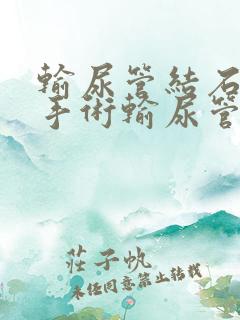 輸尿管結石
手術輸尿管
莊子帆
未經同意禁止轉載